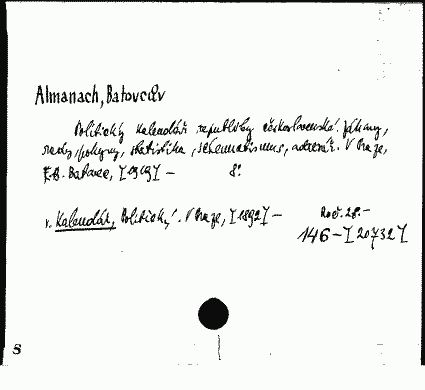 Almanach, Batovcův
Politický kalendář republiky československé.
rady, pokyny, statistika, schematismus, adresář. V Praze,
F.B. Batovec, [1919] – 8°.
v. Kalendář, Politický. V Praze, [1892] – Roč. 28.–
146–[20732]
S